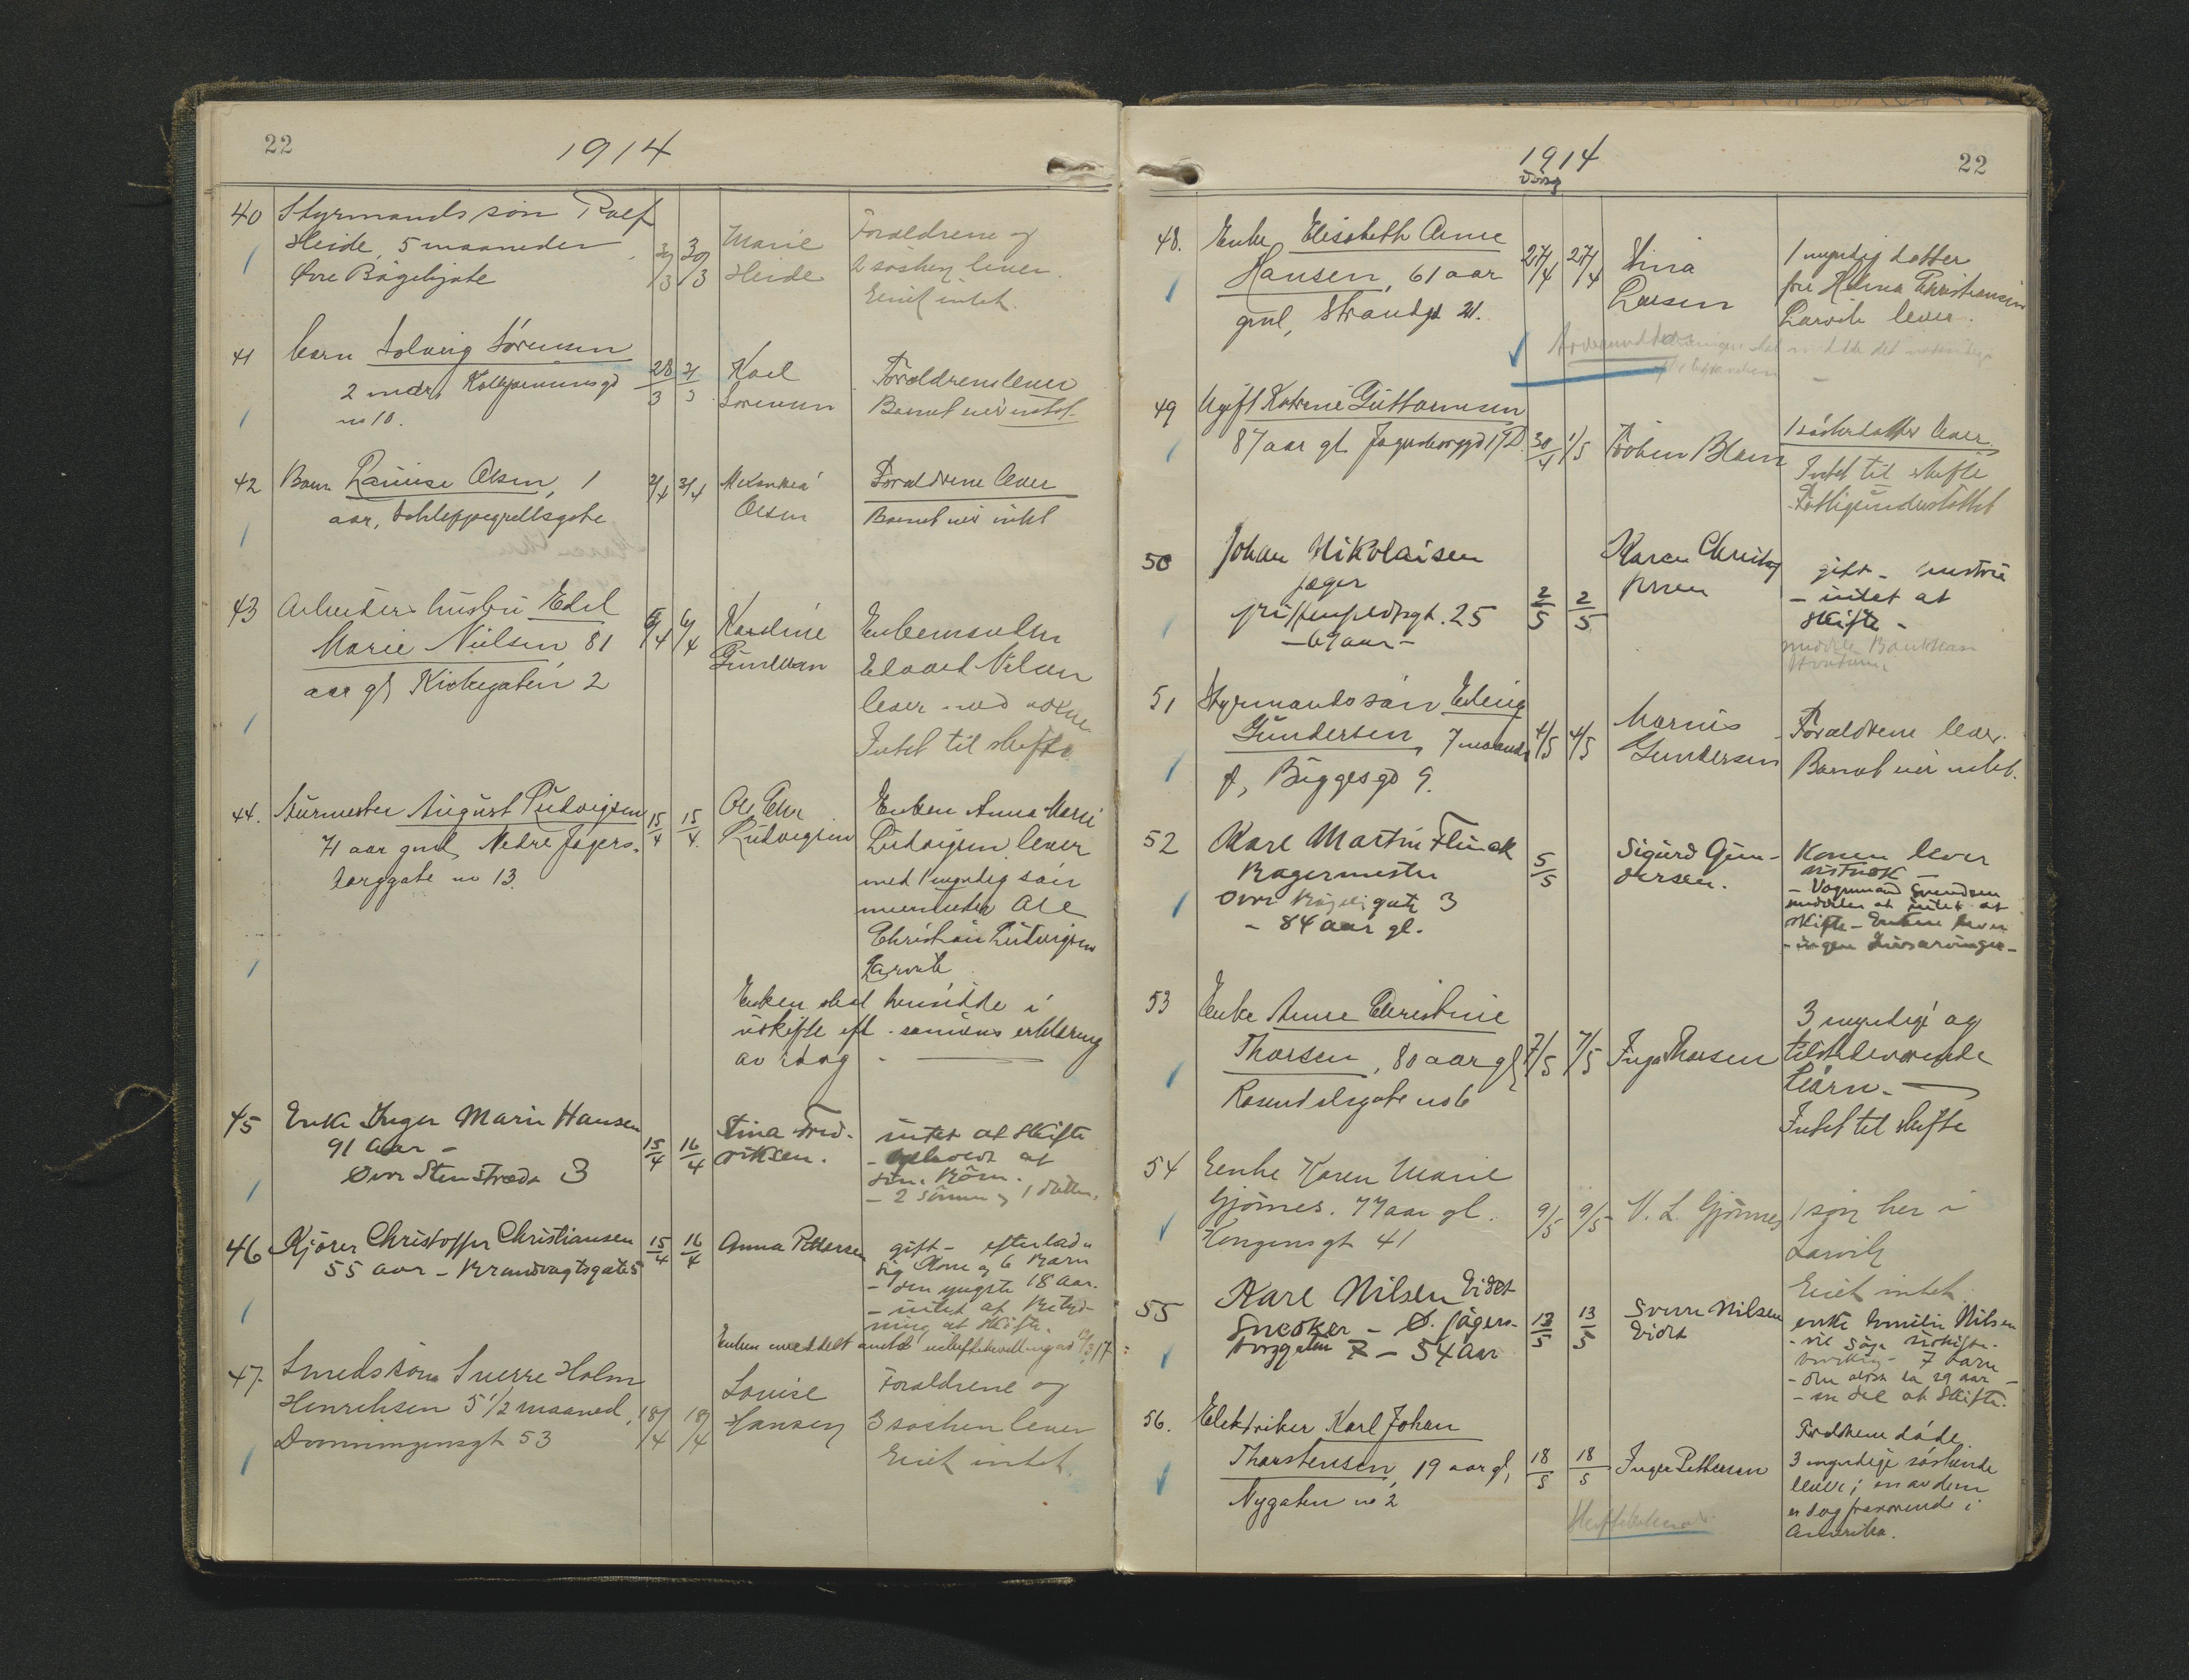 22
1914
40 Styrmandssøn Rolf
Heide, 5 maaneder 30/3 30/3 Marie Forældrene og
Øvre Bøgeligate Heide 2 søsken lever.
Eiet intet.
41 barn Solveig Sörensen
2 mdr, no 10. 28/3 Karl Forældrene lever
Sorensen Barnet eier intet
42 Barn Louise Olsen, 1 2/4 3/4 Forældrene lever
aar, Schleppegrellsgate Olsen Barnet eier intet
43 Arbeiders hustru Edel
Marie Nielsen 81 6/4 6/4 Karoline Enkemanden
aar gl Kirkegaten 2 Gundersen Edvard Nilsen
lever med voksne
Intet til skifte.
44. Murmester August Ludvigsen 15/4 15/4 Ole Chr Enken Anna Marie
71 aar gml, Nedre Jegers- Ludvigsen Ludvigsen lever
borggate no 13. med 1 myndig søn
murmester Ole
Christian Ludvigsen
Larvik
Enken skal hensidde i
uskifte eft. sønnens erklæring
av idag
45 Enke Inger Marie Hansen 15/4 16/4 Stina Fred- intet at skifte
91 aar - riksen. at
Övre Stenstræde 3 sine Börn.
- 2 sönner og 1 datter.
46 Kjører Christoffer Christiansen 15/4 16/4 Anna Pettersen gift - efterlader
55 aar - Brandvagtsgate 5 sig Kone og 6 Barn
- den yngste 18 aar.
- intet af Betyd-
ning at skifte.
Enken meddelt
47. Smedssøn Sverre Holm
Henrichsen 5 1/2 maaned, 18/4 18/4 Louise Forældrene og
Dronningensgt 53 Hansen 3 søsken lever
Eiet intet.
1914
22
48. Enke Elisabeth Anne
Hansen, 61 aar 27/4 27/4 Stina 1 myndig datter
gml, Strandgt 21. Larsen fru Helma Christiansen
Larvik lever.
49 Ugift Katrine Guttormsen
87 aar gl. 30/4 1/5 1 søsterdatter lever.
Intet til skifte
Fattigunderstøttet
50 Johan Nikolaisen Karen Christof- gift - hustru
Jæger 2/5 2/5 ersen - intet at
Griffenfeldtsgt. 25 skifte -
- 67 aar -
51 Styrmandssøn Erling
Gundersen, 7 maaneder 4/5 4/5 Marius Forældrene lever.
gl, Byggesgd 9. Gundersen Barnet eier intet.
52 Karl Martin Flinck 5/5 Sigurd Gun- Konen lever
Bagermester dersen. uskift -
Övre Bögeligate 3 - Vognmand Svendsen
- 84 aar gl. meddeler at intet at
skifte - Enken lever
- ingen Livsarvinger -
53 Enke Anne Christine
Thorsen, 80 aar gl 7/5 7/5 Inga Thorsen 3 myndige og
Rosendalsgate no 6 tilstedeværende
børn.
Intet til skifte
54 Enke Karen Marie
Gjönnes. 77 aar gl. 9/5 9/5 V. L. Gjönnes 1 søn her i
Kongensgt 41 Larvik
Eiet intet
55 Karl Nilsen Eidet
Snedker - Ö. Jägers- 13/5 13/5 Sverre Nilsen enke Emilie Nilsen
borggaten 7 - 54 aar Eidet - vil søge uskifte-
bevilling - 7 barn
- den ældste ca 29 aar -
- en del at skifte.
56. Elektriker Karl Johan
Thorstensen, 19 aar gl, 18/5 18/5 Inger Pettersen Forældrene døde
Nygaten no 2 3 myndige søskende
lever; en av dem
er dog fraværende i
Amerika.